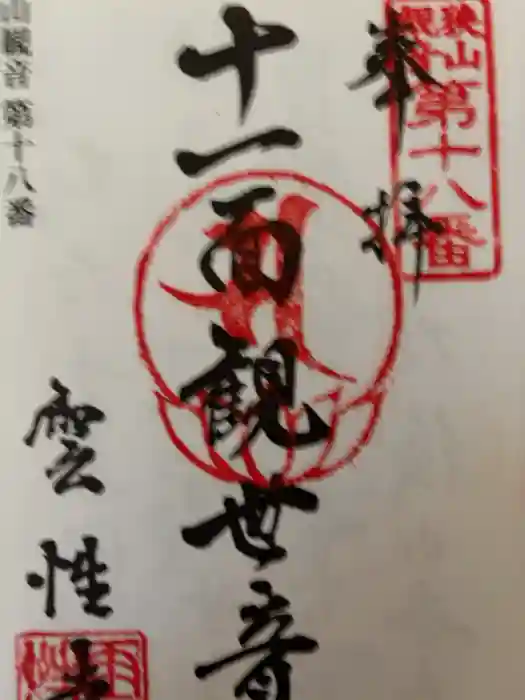 狭山
観音
第十八番
奉拝
十一面観世音
雲性寺
山観音 第十八番